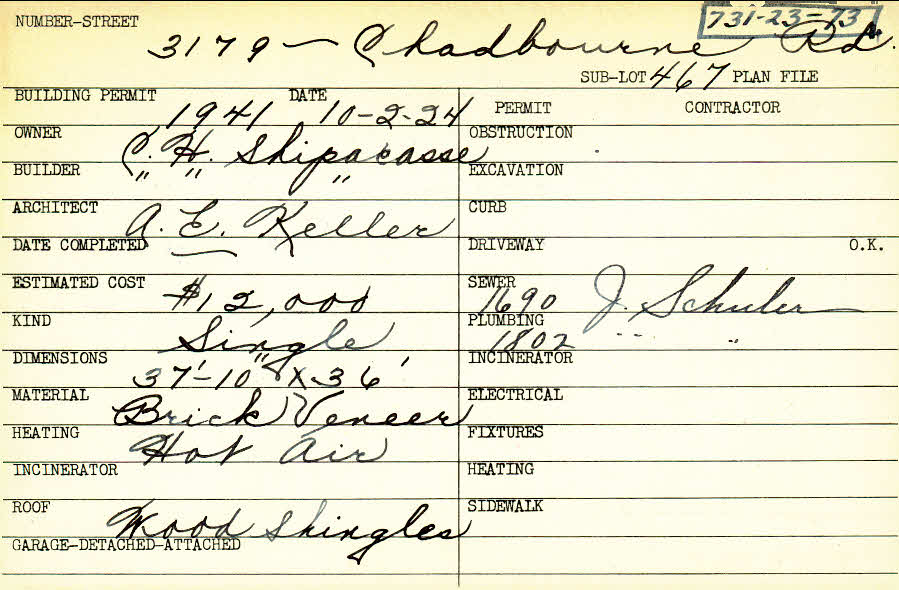 NUMBER-STREET 731-23-73
3179 — Chadbourne Rd.
SUB-LOT 467 PLAN FILE
BUILDING PERMIT 1941 DATE 10-2-24
OWNER C. H. Shipacasse
BUILDER " " "
ARCHITECT A. E. Keller
DATE COMPLETED —
ESTIMATED COST $12,000
KIND Single
DIMENSIONS 37'-10" X 36'
MATERIAL Brick Veneer
HEATING Hot Air
INCINERATOR
ROOF Wood Shingles
GARAGE-DETACHED-ATTACHED
PERMIT CONTRACTOR
OBSTRUCTION
EXCAVATION
CURB
DRIVEWAY O.K.
SEWER 1690 J. Schuler
PLUMBING 1802 " "
INCINERATOR
ELECTRICAL
FIXTURES
HEATING
SIDEWALK